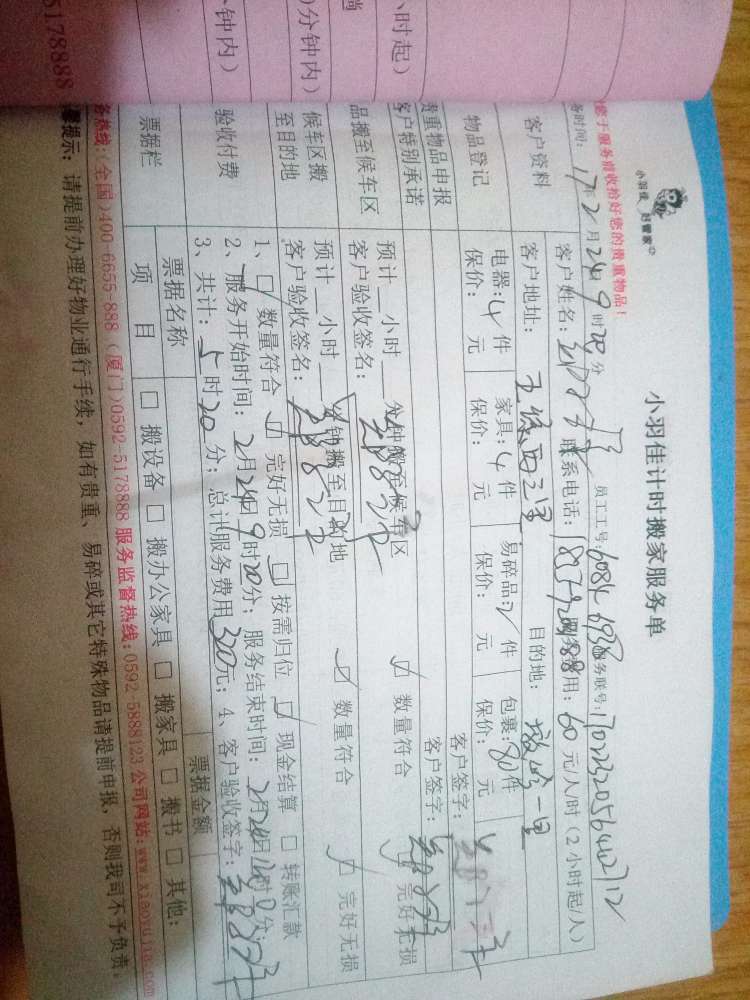 小时起)
分钟内)
钟内)
5178888
小羽佳 好管家
小羽佳计时搬家服务单
您于服务前收拾好您的贵重物品!
务时间: 17年2月24日9时20分 员工工号: 6084 务联号: 170223205640712
客户资料
客户姓名: 联系电话: 服务费用: 60元/人/时(2小时起/人)
客户地址: 目的地: 一里
物品登记
电器: 4件 家具: 4件 易碎品: 件 包裹: 80件
保价: 元 保价: 元 保价: 元 保价: 元
贵重物品申报
客户特别承诺
客户签字:
客户签字:
品搬至候车区
预计__小时__分钟搬至候车区 数量符合 完好无损
客户验收签名:
候车区搬
至目的地
预计__小时__分钟搬至目的地 数量符合 完好无损
客户验收签名:
验收付费
1、 数量符合 完好无损 按需归位 现金结算 转账汇款
2、服务开始时间: 2月24日9时20分; 服务结束时间: 2月24日 时 分;
3、共计: 5时20分; 总计服务费用 元; 4、客户验收签字:
票据栏
票据名称 票据金额
项目 搬设备 搬办公家具 搬家具 搬书 其他:
务热线:(全国)400-6655-888 (厦门)0592-5178888 服务监督热线:0592-5888123 公司网站:www.xiaoyujia.com
提示: 请提前办理好物业通行手续,如有贵重、易碎或其它特殊物品请提前申报,否则我司不予负责。